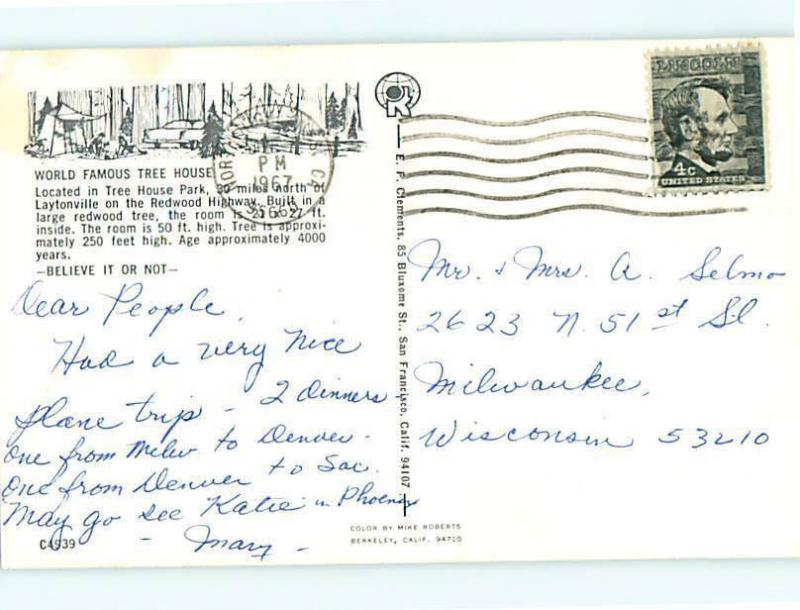 WORLD FAMOUS TREE HOUSE
Located in Tree House Park, 30 miles north of
Laytonville on the Redwood Highway. Built in a
large redwood tree, the room is 21 x 27 ft.
inside. The room is 50 ft. high. Tree is approxi-
mately 250 feet high. Age approximately 4000
years.
—BELIEVE IT OR NOT—
Dear People,
Had a very nice
plane trip - 2 dinners -
one from Milw to Denver.
One from Denver to Sac.
May go see Katie in Phoenix
- Mary -
C4939
PM
1967
R
E. F. Clements, 85 Bluxome St., San Francisco, Calif. 94107
COLOR BY MIKE ROBERTS
BERKELEY, CALIF. 94710
LINCOLN
4c
UNITED STATES
Mr. & Mrs. A. Selmo
2623 N. 51st St.
Milwaukee,
Wisconsin 53210